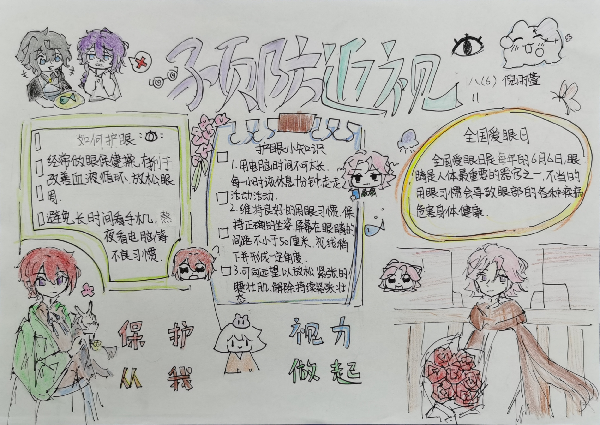 预防近视
八(6)
11
如何护眼
经常的眼保健操,有利于
改善血液循环,放松眼
周.
避免长时间看手机,熬
夜看电脑等
不良习惯.
护眼小知识
1.用电脑时间不可太长,
每一小时该休息十分钟走走
活动活动.
2.维持良好的用眼习惯,保
持正确的坐姿,屏幕在眼睛的
间距不小于50厘米,视线稍
下并形成一定角度.
3.可向远望,以放松紧张的
眼壮肌,解除持续紧张壮
态
全国爱眼日
全国爱眼日是每年的6月6日,眼
睛是人体最重要的器官之一,不当的
用眼习惯会导致眼部的各种疾病
危害身体健康.
保护视力
从我做起